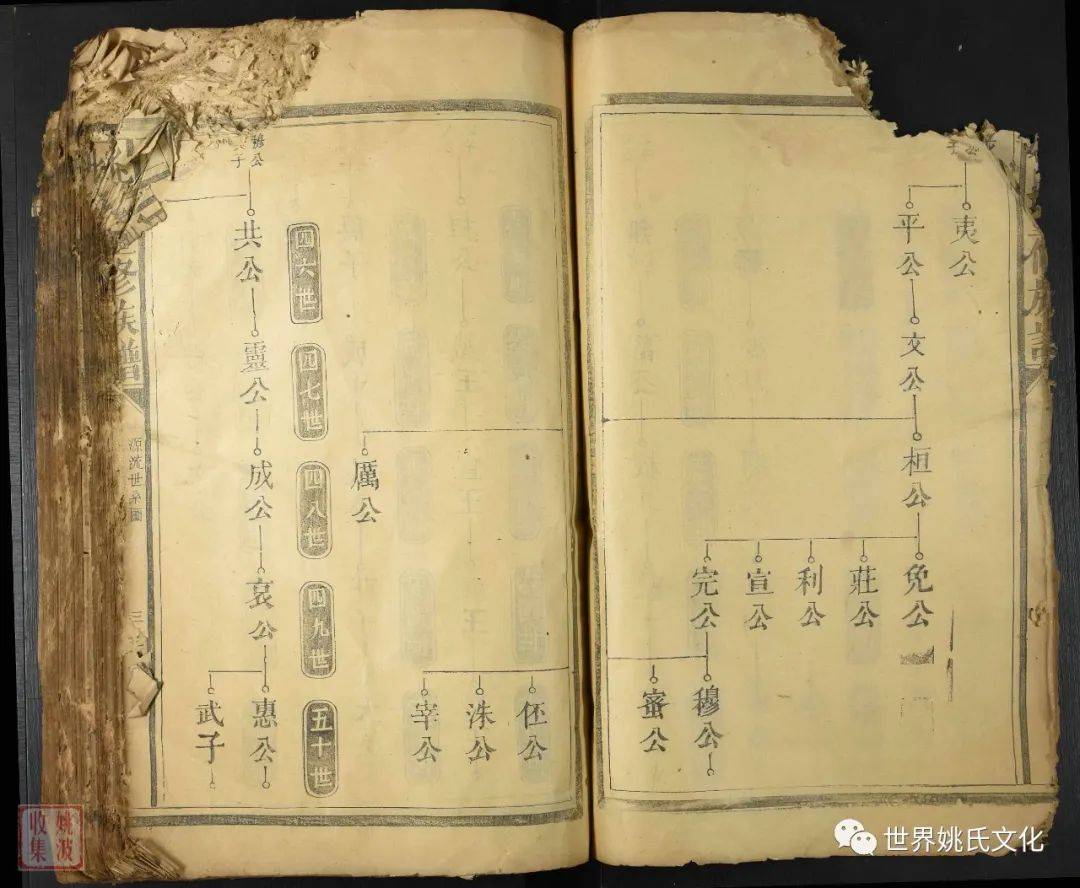 夷公
平公
文公
桓公
免公
莊公
利公
宣公
完公
穆公
蜜公
厲公
伾公
洙公
宰公
四六世
四七世
四八世
四九世
五十世
穆公
子
共公
靈公
成公
哀公
惠公
武子
修族譜
源流世系圖
姚波
收集
世界姚氏文化